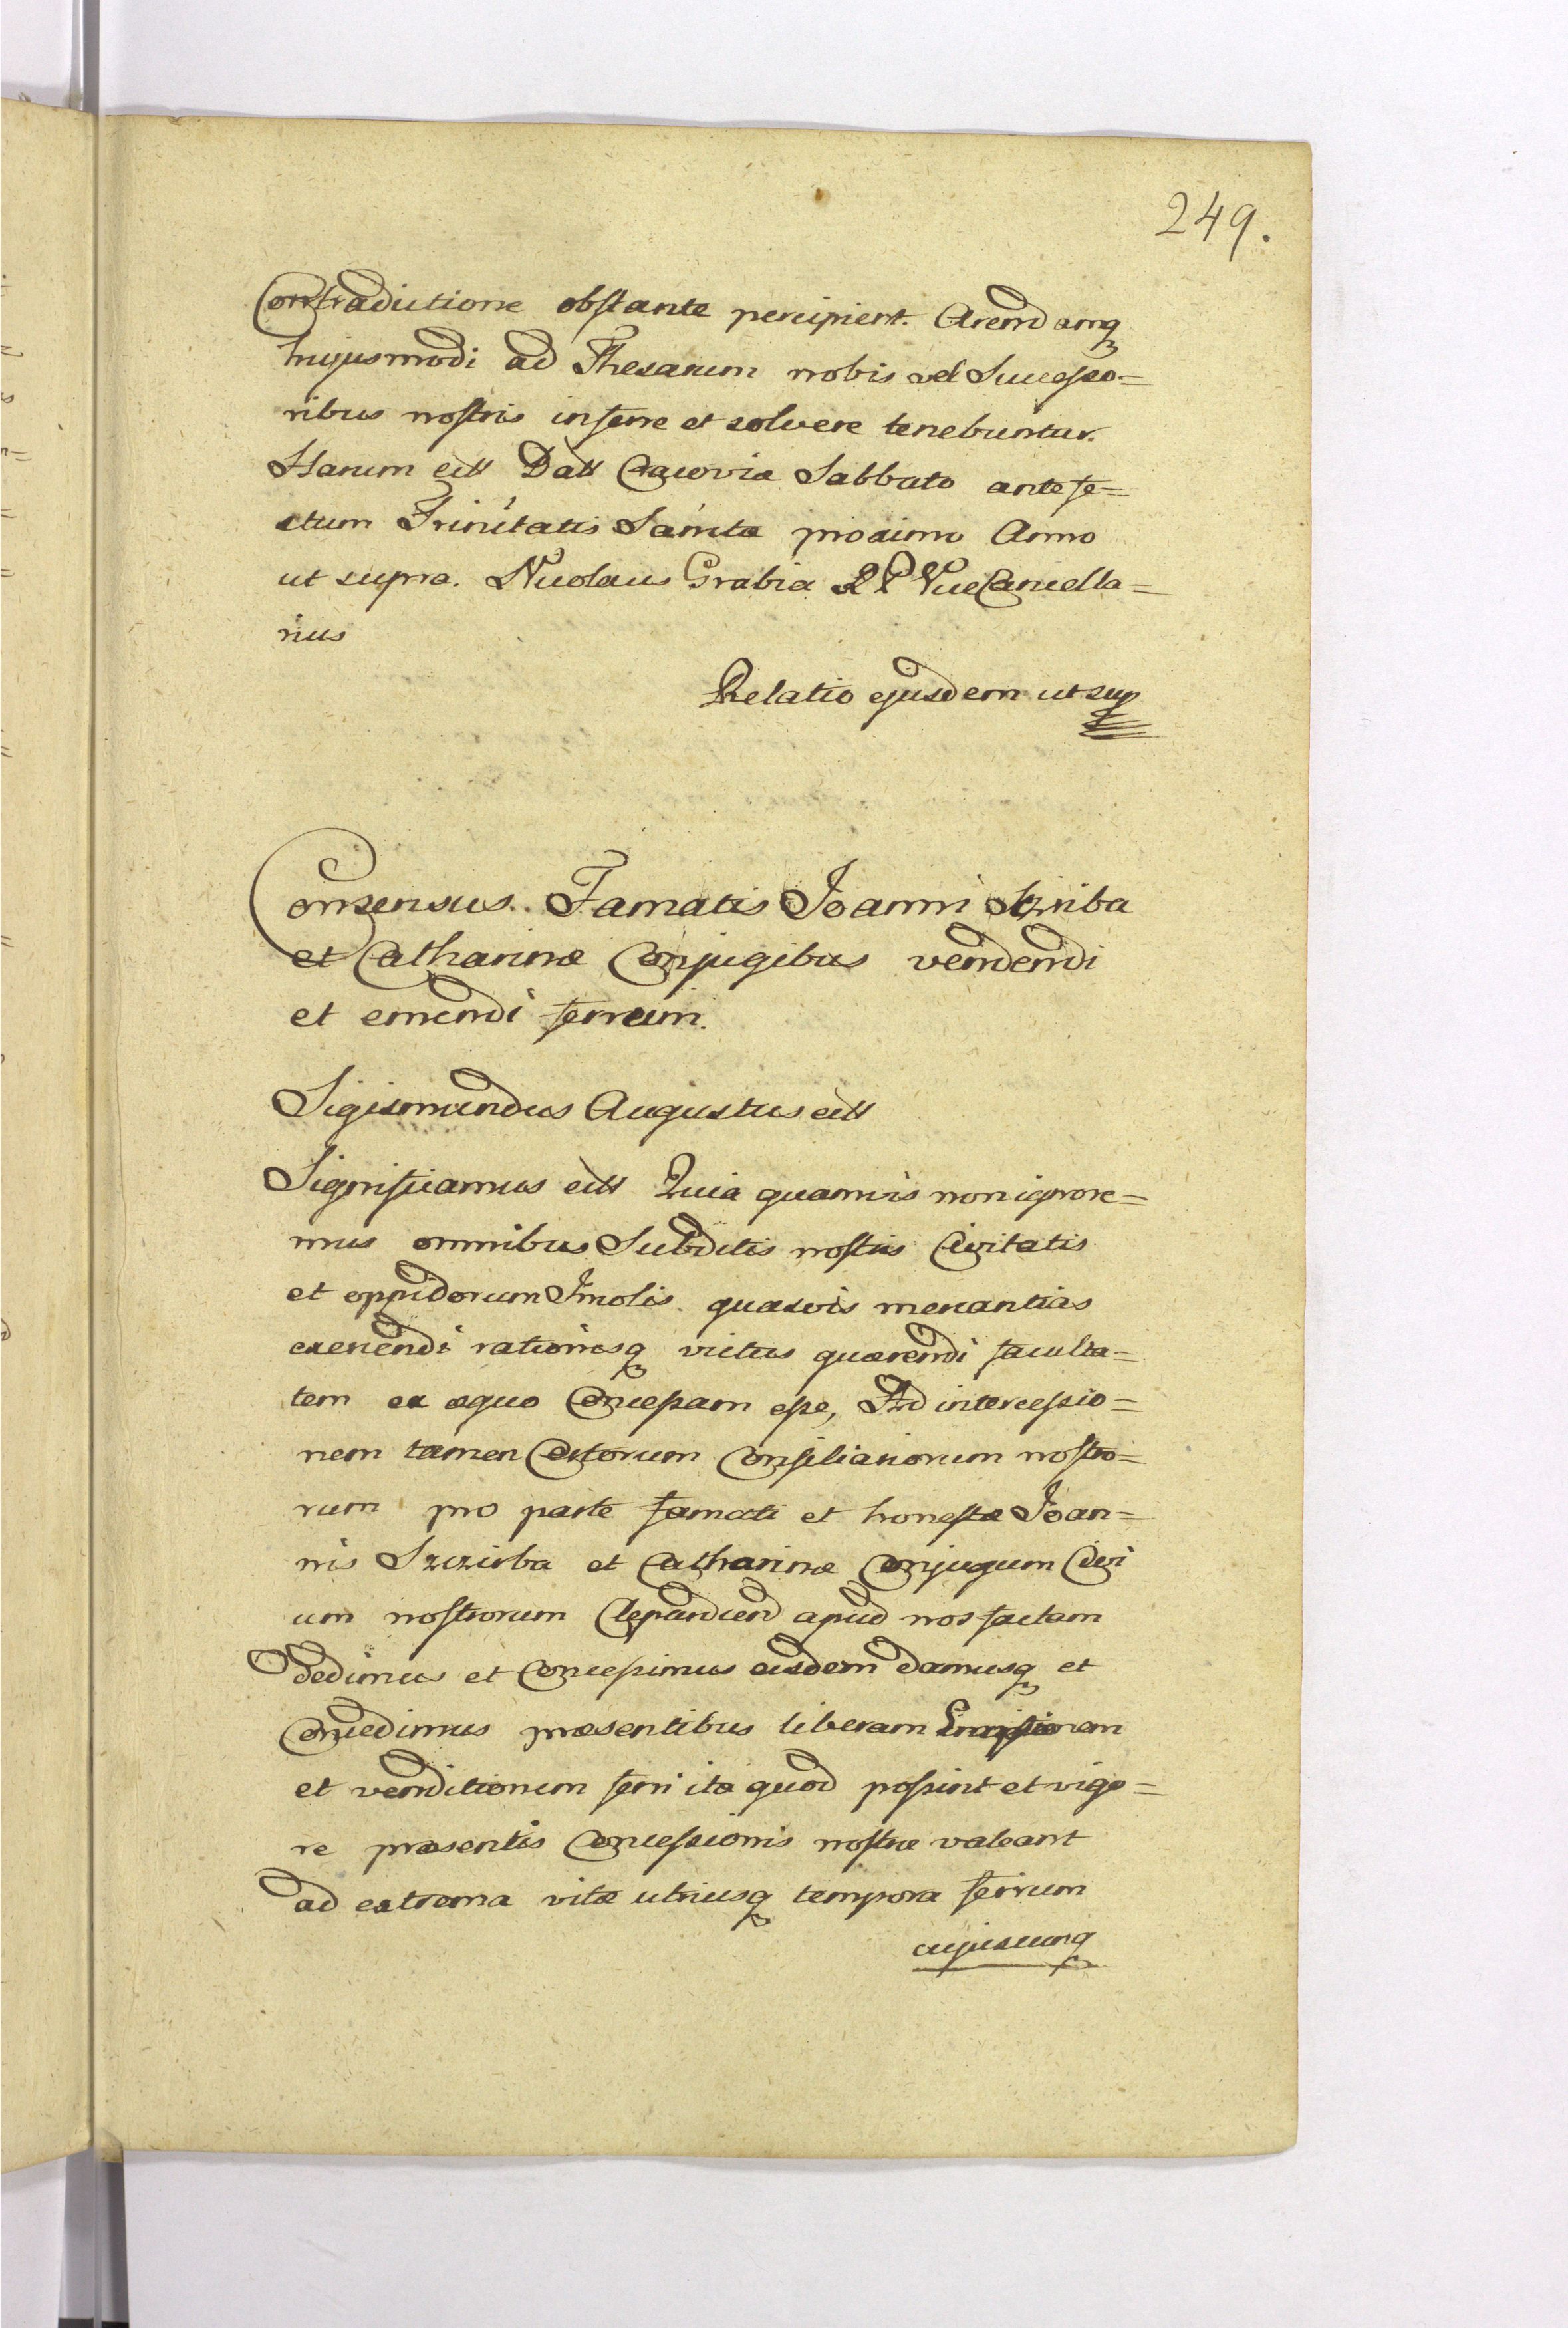 249.
Contradictione obstante percipient. Arendamq
hujusmodi ad Thesarum nobis vel Successo=
ribus nostris inferre et solvere tenebuntur.
Harum ett Datt Cracoviæ Sabbato ante fe=
stum Trinitatis Sanctæ proximo Anno
ut supra. Nicolaus Grabia R P ViceCancella=
rius
Relatio ejusdem ut sup
Consensus. Famatis Joanni
et Catharinæ Conjugibus vendendi
et emendi ferrum.
Sigismundus Augustus ett
Significamus ett Quia quamvis non ignore=
mus omnibus Subditis nostris Civitatis
et oppidorum Incolis quasvis mercantias
exercendi rationesq victus quærendi faculta=
tem ex æquo Concessam esse, Ad intercessio=
nem tamen Certorum Consiliariorum nostro=
rum pro parte famati et honestæ Joan=
nis Szczirba et Catharinæ Conjugum Civi
um nostrorum Clepardien apud nos factam
dedimus et Concessimus eisdem damusq et
Concedimus præsentibus liberam Emptionem
et venditionem ferri ita quod possint et vigo=
re præsentis Concessionis nostræ valeant
ad extrema vitæ utriusq tempora ferrum
cujuscunq